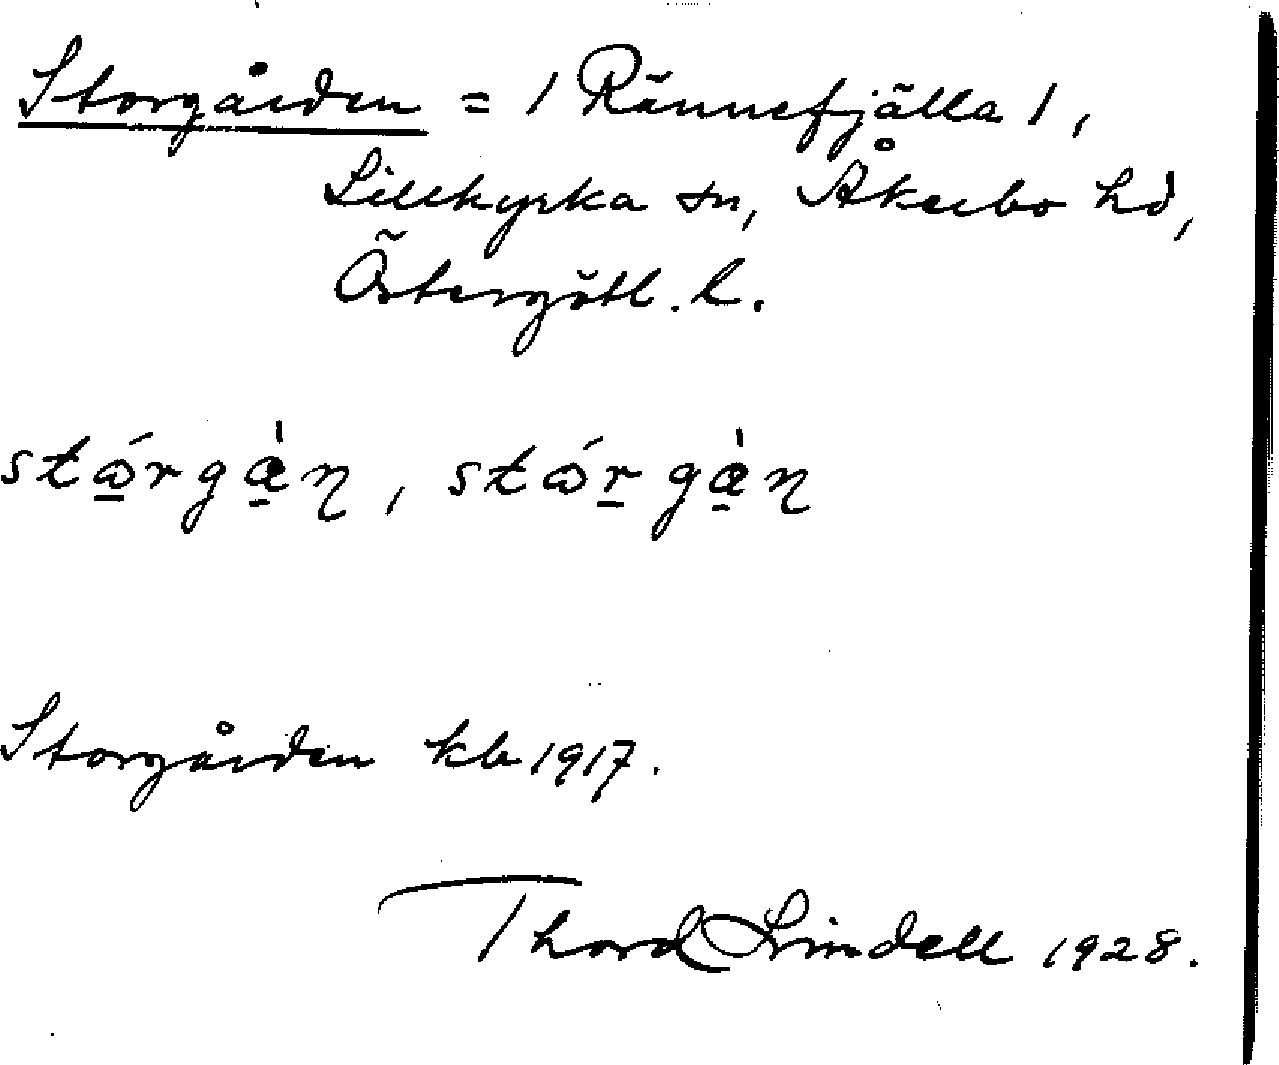 Storgården = / Rännefjälla /,
Lillkyrka sn, Åkerbo hd,
Östergötl. l.
Storgården kb 1917.
Thord Lindell 1928.